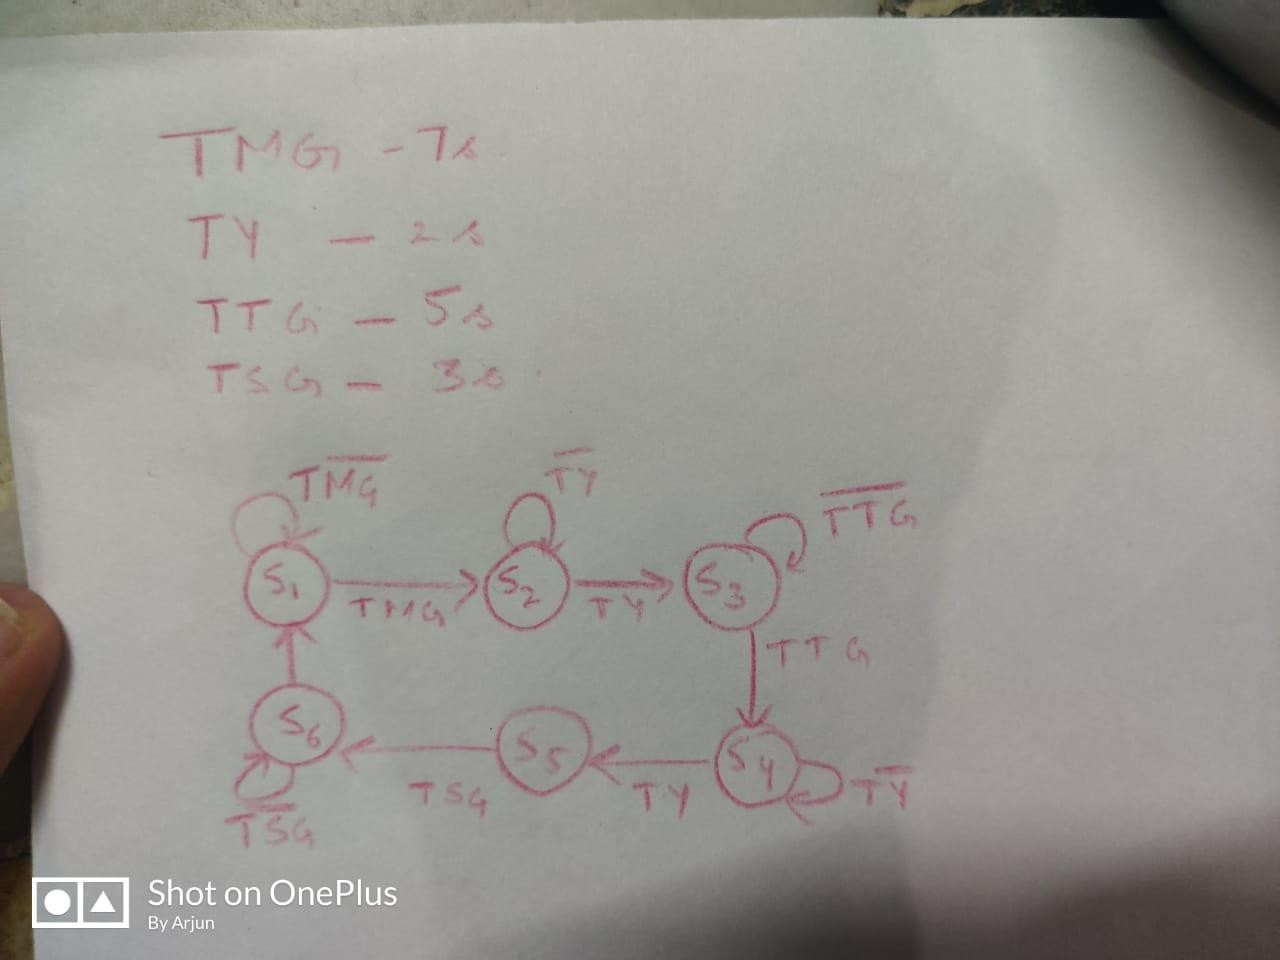 TMG - 7s
TY - 2s
TTG - 5s
TSG - 3s
TM̅G̅
T̅Y̅
T̅T̅G̅
S1
TMG
S2
TY
S3
TTG
S6
TSG
S5
TY
S4
TY̅
T̅S̅G̅
Shot on OnePlus
By Arjun